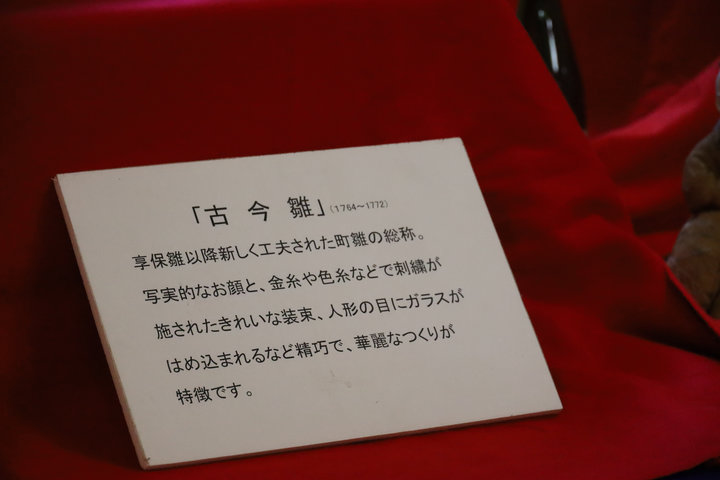 「古今雛」(1764〜1772)
享保雛以降新しく工夫された町雛の総称。
写実的なお顔と、金糸や色糸などで刺繍が
施されたきれいな装束、人形の目にガラスが
はめ込まれるなど精巧で、華麗なつくりが
特徴です。